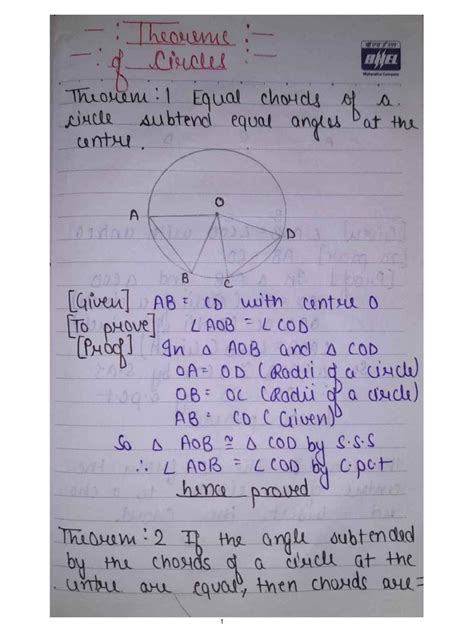 Theorems
of Circles
बी एच ई एल
BHEL
Maharatna Company
Theorem:1 Equal chords of a
circle subtend equal angles at the
centre.
O
A
D
B
C
[Given] AB = CD with centre O
[To prove] ∠AOB = ∠COD
[Proof] In △ AOB and △ COD
OA = OD (Radii of a circle)
OB = OC (Radii of a circle)
AB = CD (Given)
So △ AOB ≅ △ COD by S.S.S
∴ ∠ AOB = ∠ COD by C.p.c.t
hence proved
Theorem:2 If the angle subtended
by the chords of a circle at the
centre are equal, then chords are =
1